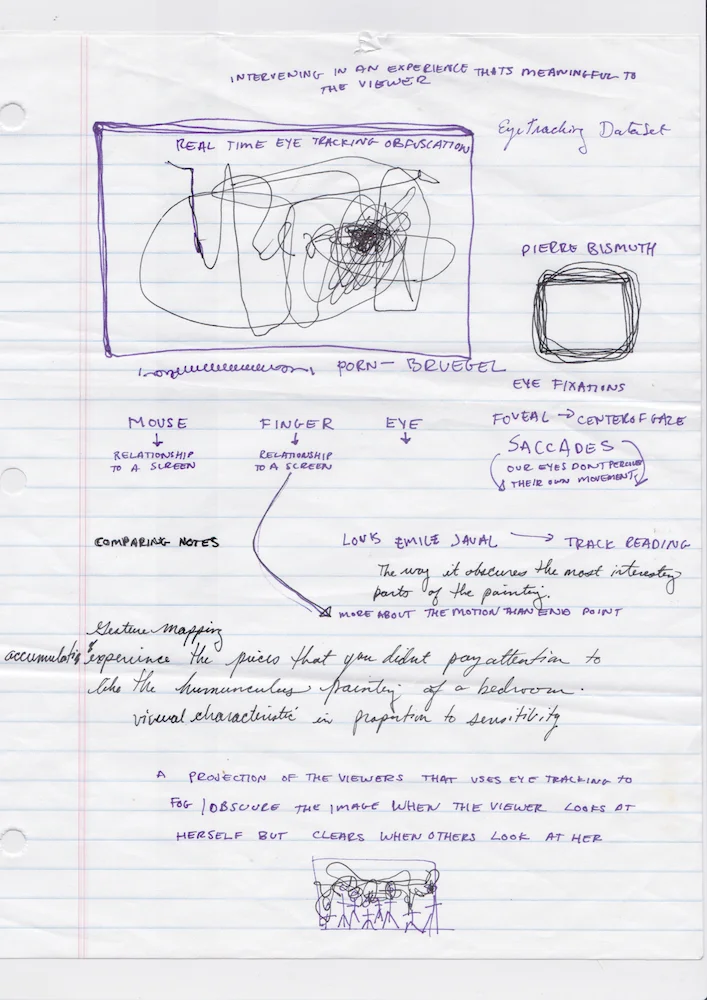 INTERVENING IN AN EXPERIENCE THATS MEANINGFUL TO
THE VIEWER
EyeTracking DataSet
REAL TIME EYE TRACKING OBFUSCATION
PIERRE BISMUTH
PORN - BRUEGEL
EYE FIXATIONS
MOUSE
↓
RELATIONSHIP
TO A SCREEN
FINGER
↓
RELATIONSHIP
TO A SCREEN
EYE
↓
FOVEAL → CENTER OF GAZE
SACCADES
OUR EYES DONT PERCIEVE
THEIR OWN MOVEMENTS
COMPARING NOTES
LOUIS EMILE JAVAL → TRACK READING
The way it obscures the most interesting
parts of the painting.
MORE ABOUT THE MOTION THAN END POINT
Gesture Mapping
experience the pieces that you didnt pay attention to
like the humunculus painting of a bedroom.
visual characteristic in proportion to sensitibity
A PROJECTION OF THE VIEWERS THAT USES EYE TRACKING TO
FOG / OBSCURE THE IMAGE WHEN THE VIEWER LOOKS AT
HERSELF BUT CLEARS WHEN OTHERS LOOK AT HER